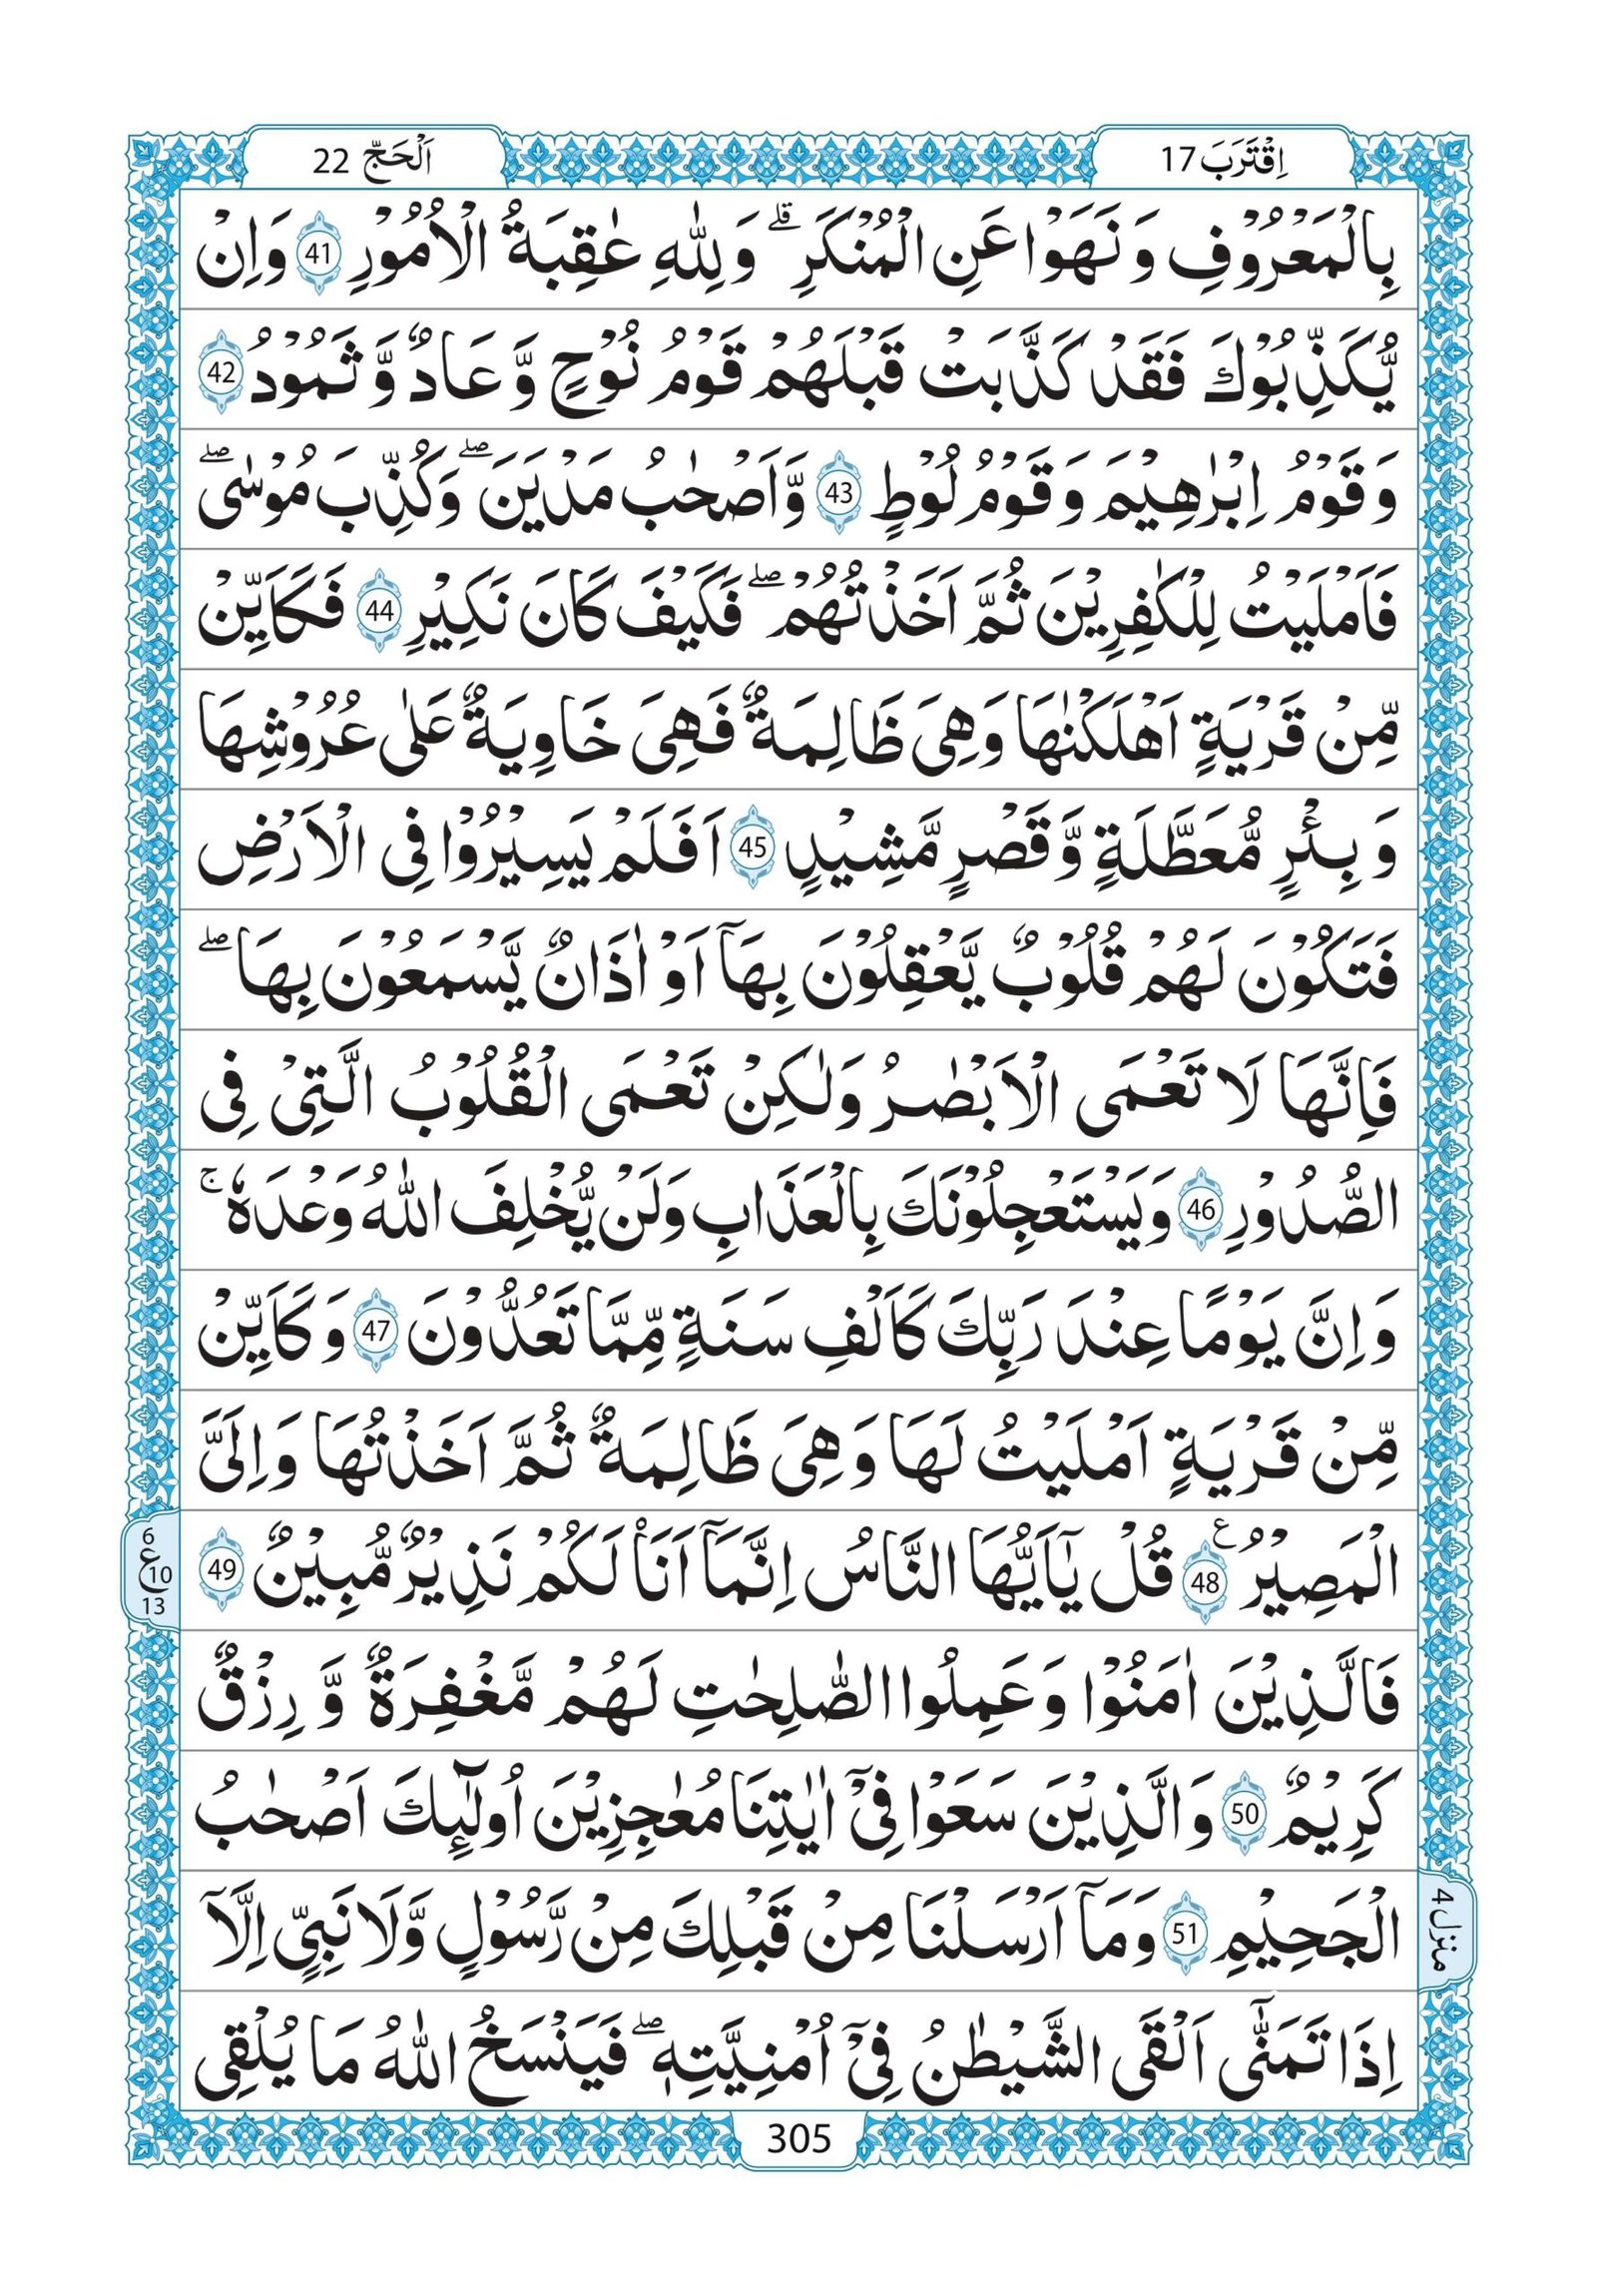 اِقْتَرَبَ 17
اَلْحَجّ 22
بِالْمَعْرُوْفِ وَ نَهَوْا عَنِ الْمُنْكَرِ ۗ وَ لِلّٰهِ عٰقِبَةُ الْاُمُوْرِ 41 وَاِنْ
يُّكَذِّبُوْكَ فَقَدْ كَذَّبَتْ قَبْلَهُمْ قَوْمُ نُوْحٍ وَّ عَادٌ وَّ ثَمُوْدُ 42
وَ قَوْمُ اِبْرٰهِيْمَ وَ قَوْمُ لُوْطٍ 43 وَّاَصْحٰبُ مَدْيَنَ ۖ وَكُذِّبَ مُوْسٰى ۖ
فَاَمْلَيْتُ لِلْكٰفِرِيْنَ ثُمَّ اَخَذْتُهُمْ ۖ فَكَيْفَ كَانَ نَكِيْرِ 44 فَكَاَيِّنْ
مِّنْ قَرْيَةٍ اَهْلَكْنٰهَا وَهِىَ ظَالِمَةٌ فَهِىَ خَاوِيَةٌ عَلٰى عُرُوْشِهَا
وَ بِئْرٍ مُّعَطَّلَةٍ وَّ قَصْرٍ مَّشِيْدٍ 45 اَفَلَمْ يَسِيْرُوْا فِى الْاَرْضِ
فَتَكُوْنَ لَهُمْ قُلُوْبٌ يَّعْقِلُوْنَ بِهَآ اَوْ اٰذَانٌ يَّسْمَعُوْنَ بِهَا ۖ
فَاِنَّهَا لَا تَعْمَى الْاَبْصٰرُ وَلٰكِنْ تَعْمَى الْقُلُوْبُ الَّتِىْ فِى
الصُّدُوْرِ 46 وَيَسْتَعْجِلُوْنَكَ بِالْعَذَابِ وَلَنْ يُّخْلِفَ اللّٰهُ وَعْدَهٗ ۚ
وَاِنَّ يَوْمًا عِنْدَ رَبِّكَ كَاَلْفِ سَنَةٍ مِّمَّا تَعُدُّوْنَ 47 وَ كَاَيِّنْ
مِّنْ قَرْيَةٍ اَمْلَيْتُ لَهَا وَهِىَ ظَالِمَةٌ ثُمَّ اَخَذْتُهَا وَاِلَىَّ
الْمَصِيْرُ 48 ع قُلْ يٰٓاَيُّهَا النَّاسُ اِنَّمَآ اَنَا۠ لَكُمْ نَذِيْرٌ مُّبِيْنٌ 49
6
ع 10
13
فَالَّذِيْنَ اٰمَنُوْا وَ عَمِلُوا الصّٰلِحٰتِ لَهُمْ مَّغْفِرَةٌ وَّ رِزْقٌ
كَرِيْمٌ 50 وَالَّذِيْنَ سَعَوْا فِىْٓ اٰيٰتِنَا مُعٰجِزِيْنَ اُولٰٓئِكَ اَصْحٰبُ
الْجَحِيْمِ 51 وَمَآ اَرْسَلْنَا مِنْ قَبْلِكَ مِنْ رَّسُوْلٍ وَّلَا نَبِىٍّ اِلَّآ
منزل 4
اِذَا تَمَنّٰىٓ اَلْقَى الشَّيْطٰنُ فِىْٓ اُمْنِيَّتِهٖ ۖ فَيَنْسَخُ اللّٰهُ مَا يُلْقِى
305